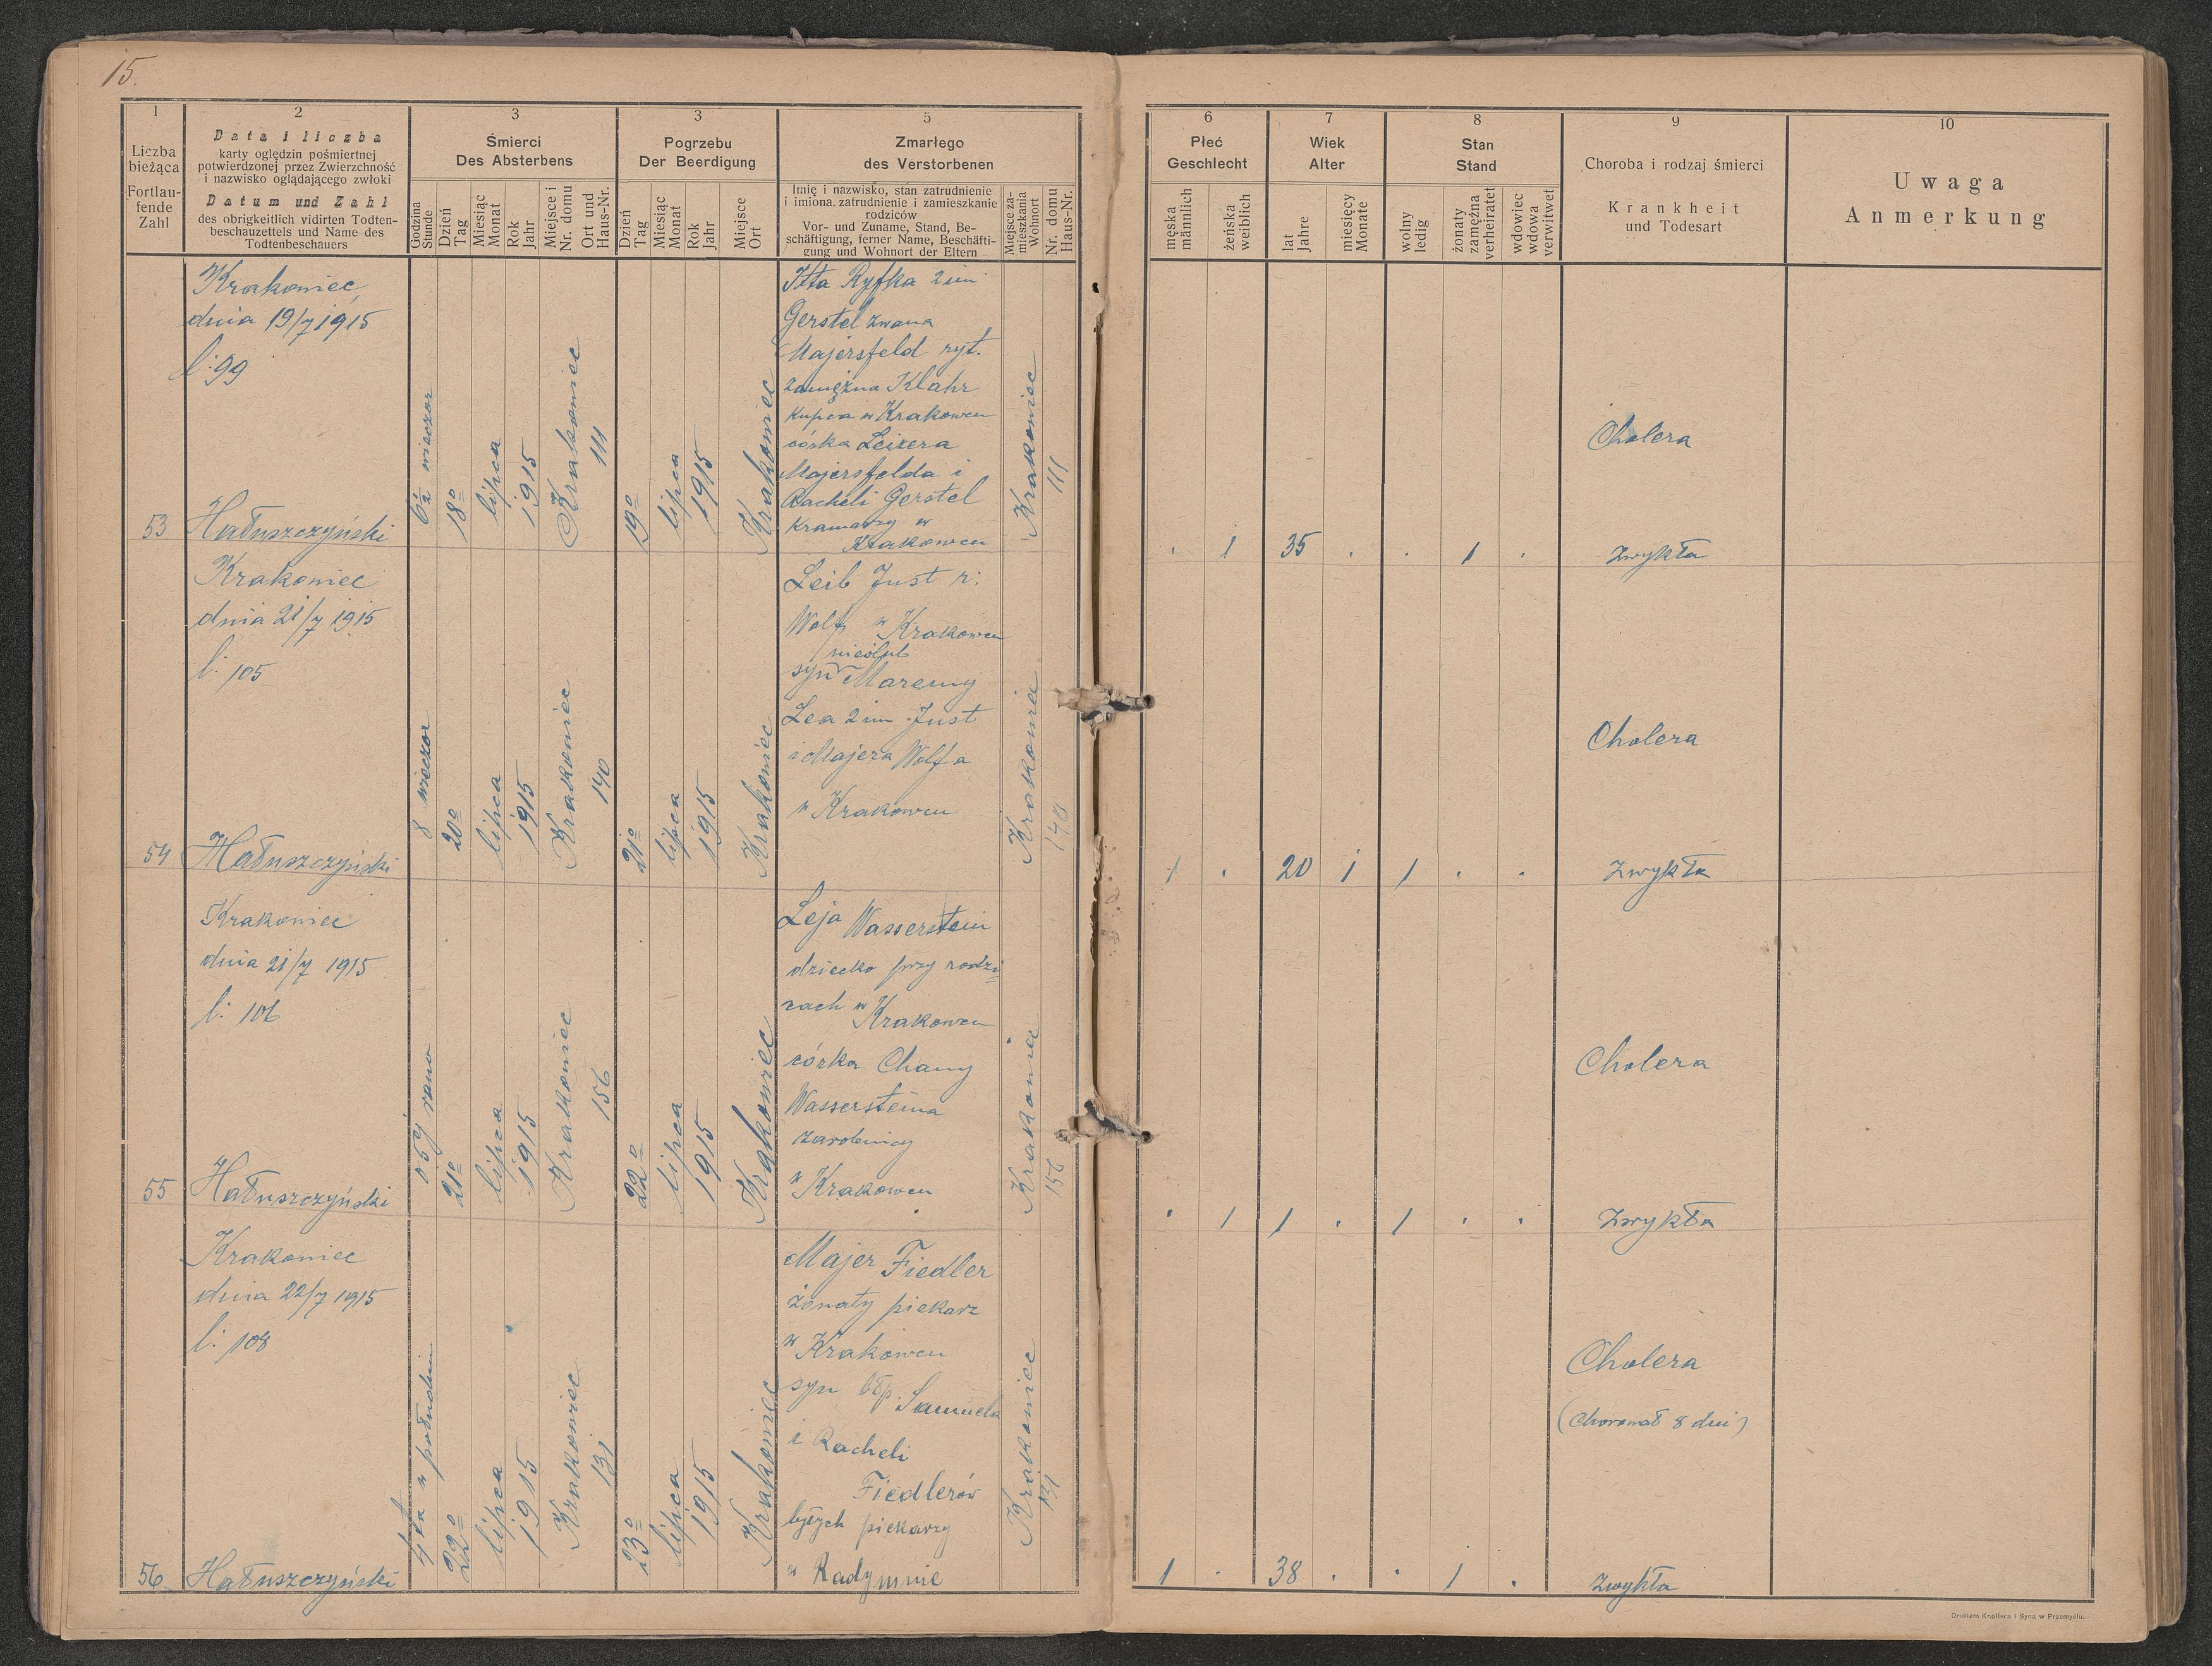 15.
1
Liczba
bieżąca
Fortlau-
fende
Zahl
2
Data i liczba
karty oględzin pośmiertnej
potwierdzonej przez Zwierzchność
i nazwisko oglądającego zwłoki
Datum und Zahl
des obrigkeitlich vidirten Todten-
beschauzettels und Name des
Todtenbeschauers
3
Śmierci
Des Absterbens
Godzina
Stunde
Dzień
Tag
Miesiąc
Monat
Rok
Jahr
Miejsce i
Nr. domu
Ort und
Haus-Nr.
3
Pogrzebu
Der Beerdigung
Dzień
Tag
Miesiąc
Monat
Rok
Jahr
Miejsce
Ort
5
Zmarłego
des Verstorbenen
Imię i nazwisko, stan zatrudnienie
i imiona. zatrudnienie i zamieszkanie
rodziców
Vor- und Zuname, Stand, Be-
schäftigung, ferner Name, Beschäfti-
gung und Wohnort der Eltern
Miejsce za-
mieszkania
Wohnort
Nr. domu
Haus-Nr.
6
Płeć
Geschlecht
męska
männlich
żeńska
weiblich
7
Wiek
Alter
lat
Jahre
miesięcy
Monate
8
Stan
Stand
wolny
ledig
żonaty
zamężna
verheiratet
wdowiec
wdowa
verwitwet
9
Choroba i rodzaj śmierci
Krankheit
und Todesart
10
Uwaga
Anmerkung
53
Krakowiec,
dnia 19/7 1915
l: 99
Hałuszczyński
6 1/2 wieczor
18o
lipca
1915
Krakowiec
111
19o
lipca
1915
Krakowiec
Itta Ryfka 2im
Gerstel zwana
Majersfeld ryt.
zamężna Klahr
kupca w Krakowcu
córka Leizera
Majersfelda i
Racheli Gerstel
kramarzy w
Krakowcu
Krakowiec
111
. 1 35 . . 1 .
Cholera
zwykła
54
Krakowiec
dnia 21/7 1915
l: 105
Hałuszczyński
8 wieczor
20o
lipca
1915
Krakowiec
140
21o
lipca
1915
Krakowiec
Leib Just r:
Wolf w Krakowcu
nieślub
syn Maremy
Lea 2im Just
i Majera Wolfa
w Krakowcu
Krakowia
140
1 . 20 1 1 . .
Cholera
zwykła
55
Krakowiec
dnia 21/7 1915
l: 106
Hałuszczyński
o 5ej rano
21o
lipca
1915
Krakowiec
156
22o
lipca
1915
Krakowiec
Leja Wasserstein
dziecko przy rodzi-
cach w Krakowcu
córka Chany
Wassersteina
zarobnicy
w Krakowcu
Krakowia
156
. 1 1 . 1 . .
Cholera
zwykła
56
Krakowiec
dnia 22/7 1915
l: 108
Hałuszczyński
4ta w południu
22o
lipca
1915
Krakowiec
131
23o
lipca
1915
Krakowiec
Majer Fiedler
żonaty piekarz
w Krakowcu
syn błp. Samuela
i Racheli
Fiedlerów
byłych piekarzy
w Radymnie
Krakowiec
131
1 . 38 . . 1 .
Cholera
(chorował 8 dni)
zwykła
Drukiem Knollera i Syna w Przemyślu.